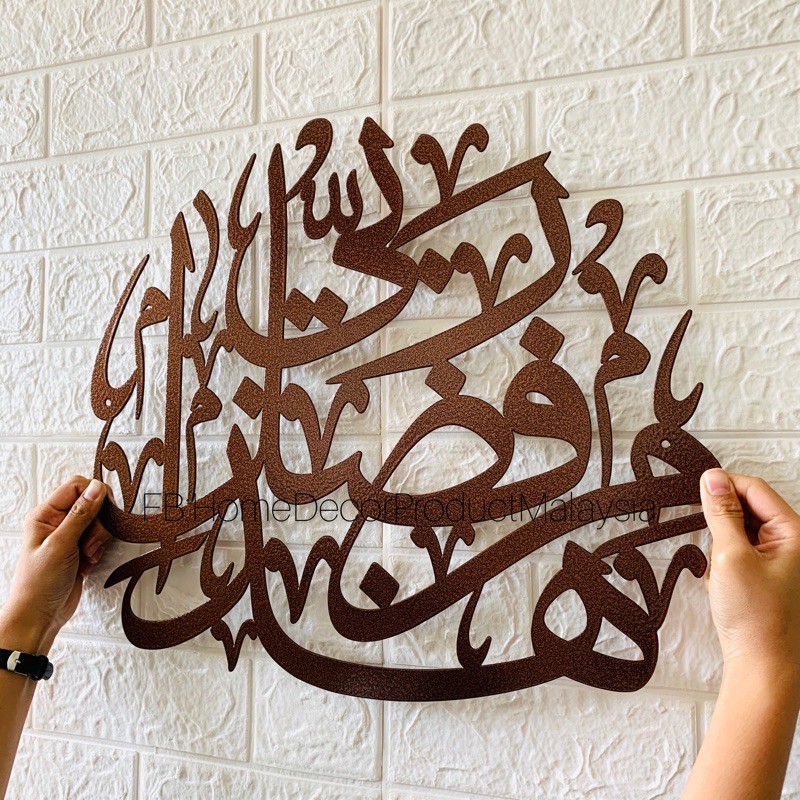 هذا من فضل ربي
FB:HomeDecorProductMalaysia